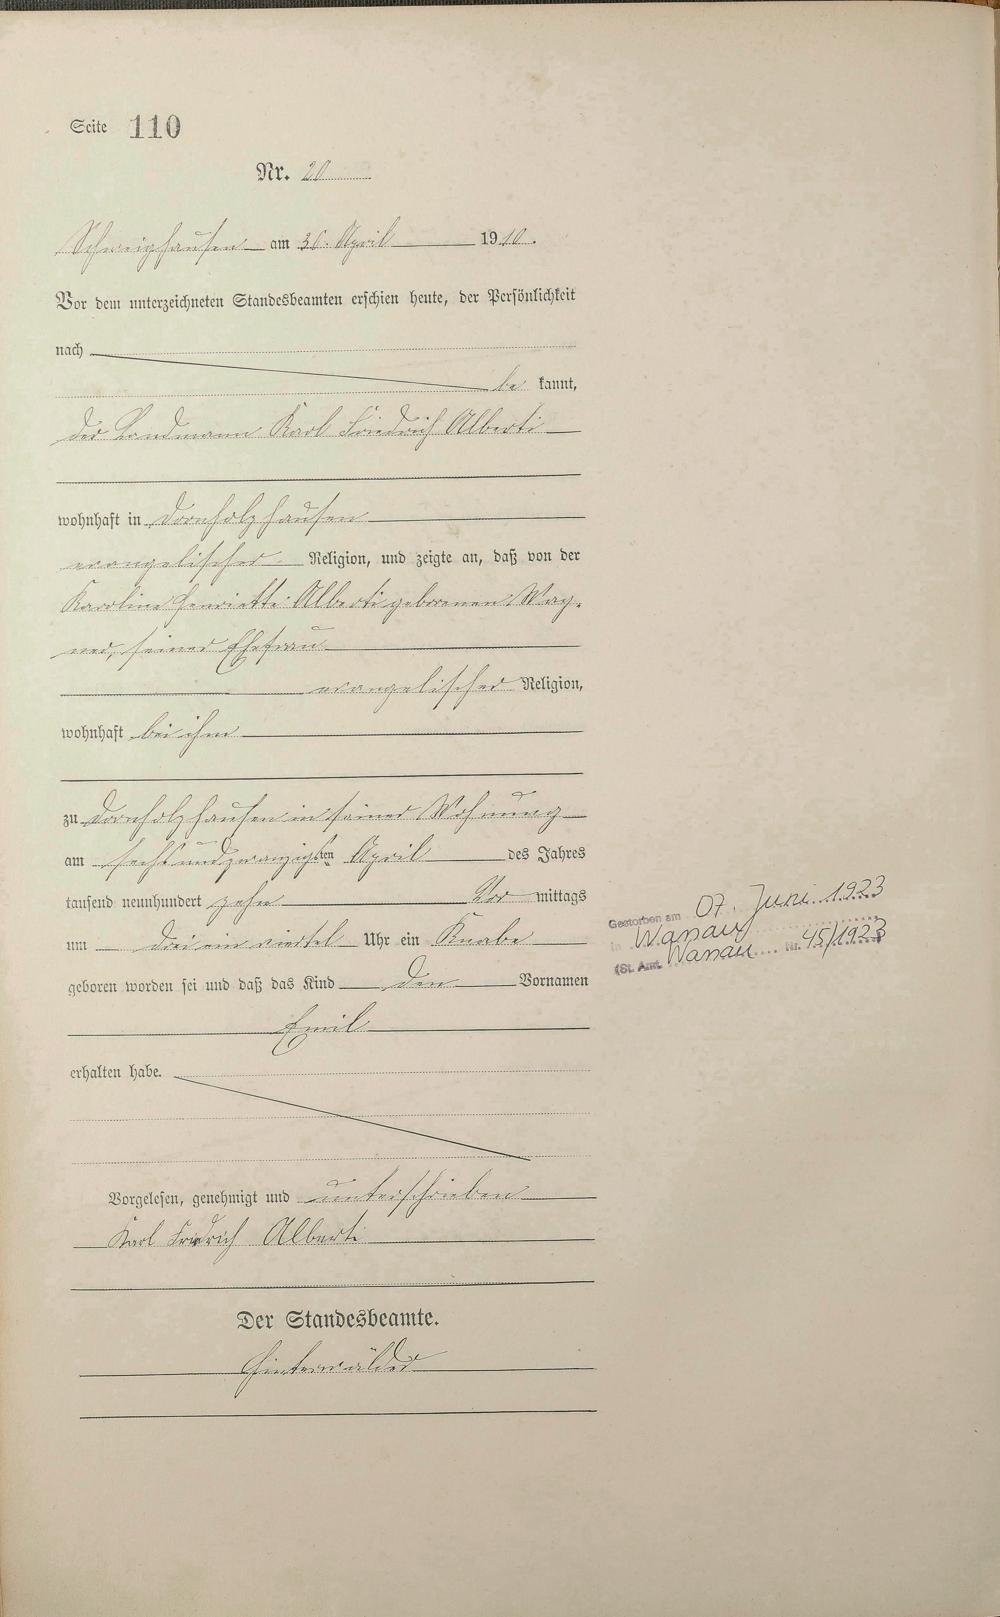 Seite 110
Nr. 20
Schweighausen am 30. April 1910.
Vor dem unterzeichneten Standesbeamten erschien heute, der Persönlichkeit
nach
be kannt,
der Landmann Karl Friedrich Alberti
wohnhaft in Dornholzhausen
evangelischer Religion, und zeigte an, daß von der
Karoline Henriette Alberti geborenen Wag-
ner, seiner Ehefrau
evangelischer Religion,
wohnhaft bei ihm
zu Dornholzhausen in seiner Wohnung
am sechsundzwanzigsten April des Jahres
tausend neunhundert zehn Vor mittags
um drei ein viertel Uhr ein Knabe
geboren worden sei und daß das Kind den Vornamen
Emil
erhalten habe.
Vorgelesen, genehmigt und unterschrieben
Karl Friedrich Alberti
Der Standesbeamte.
Hinterwälder
Gestorben am 07. Juni 1923
in
(St. Amt. Nr. 45/1923